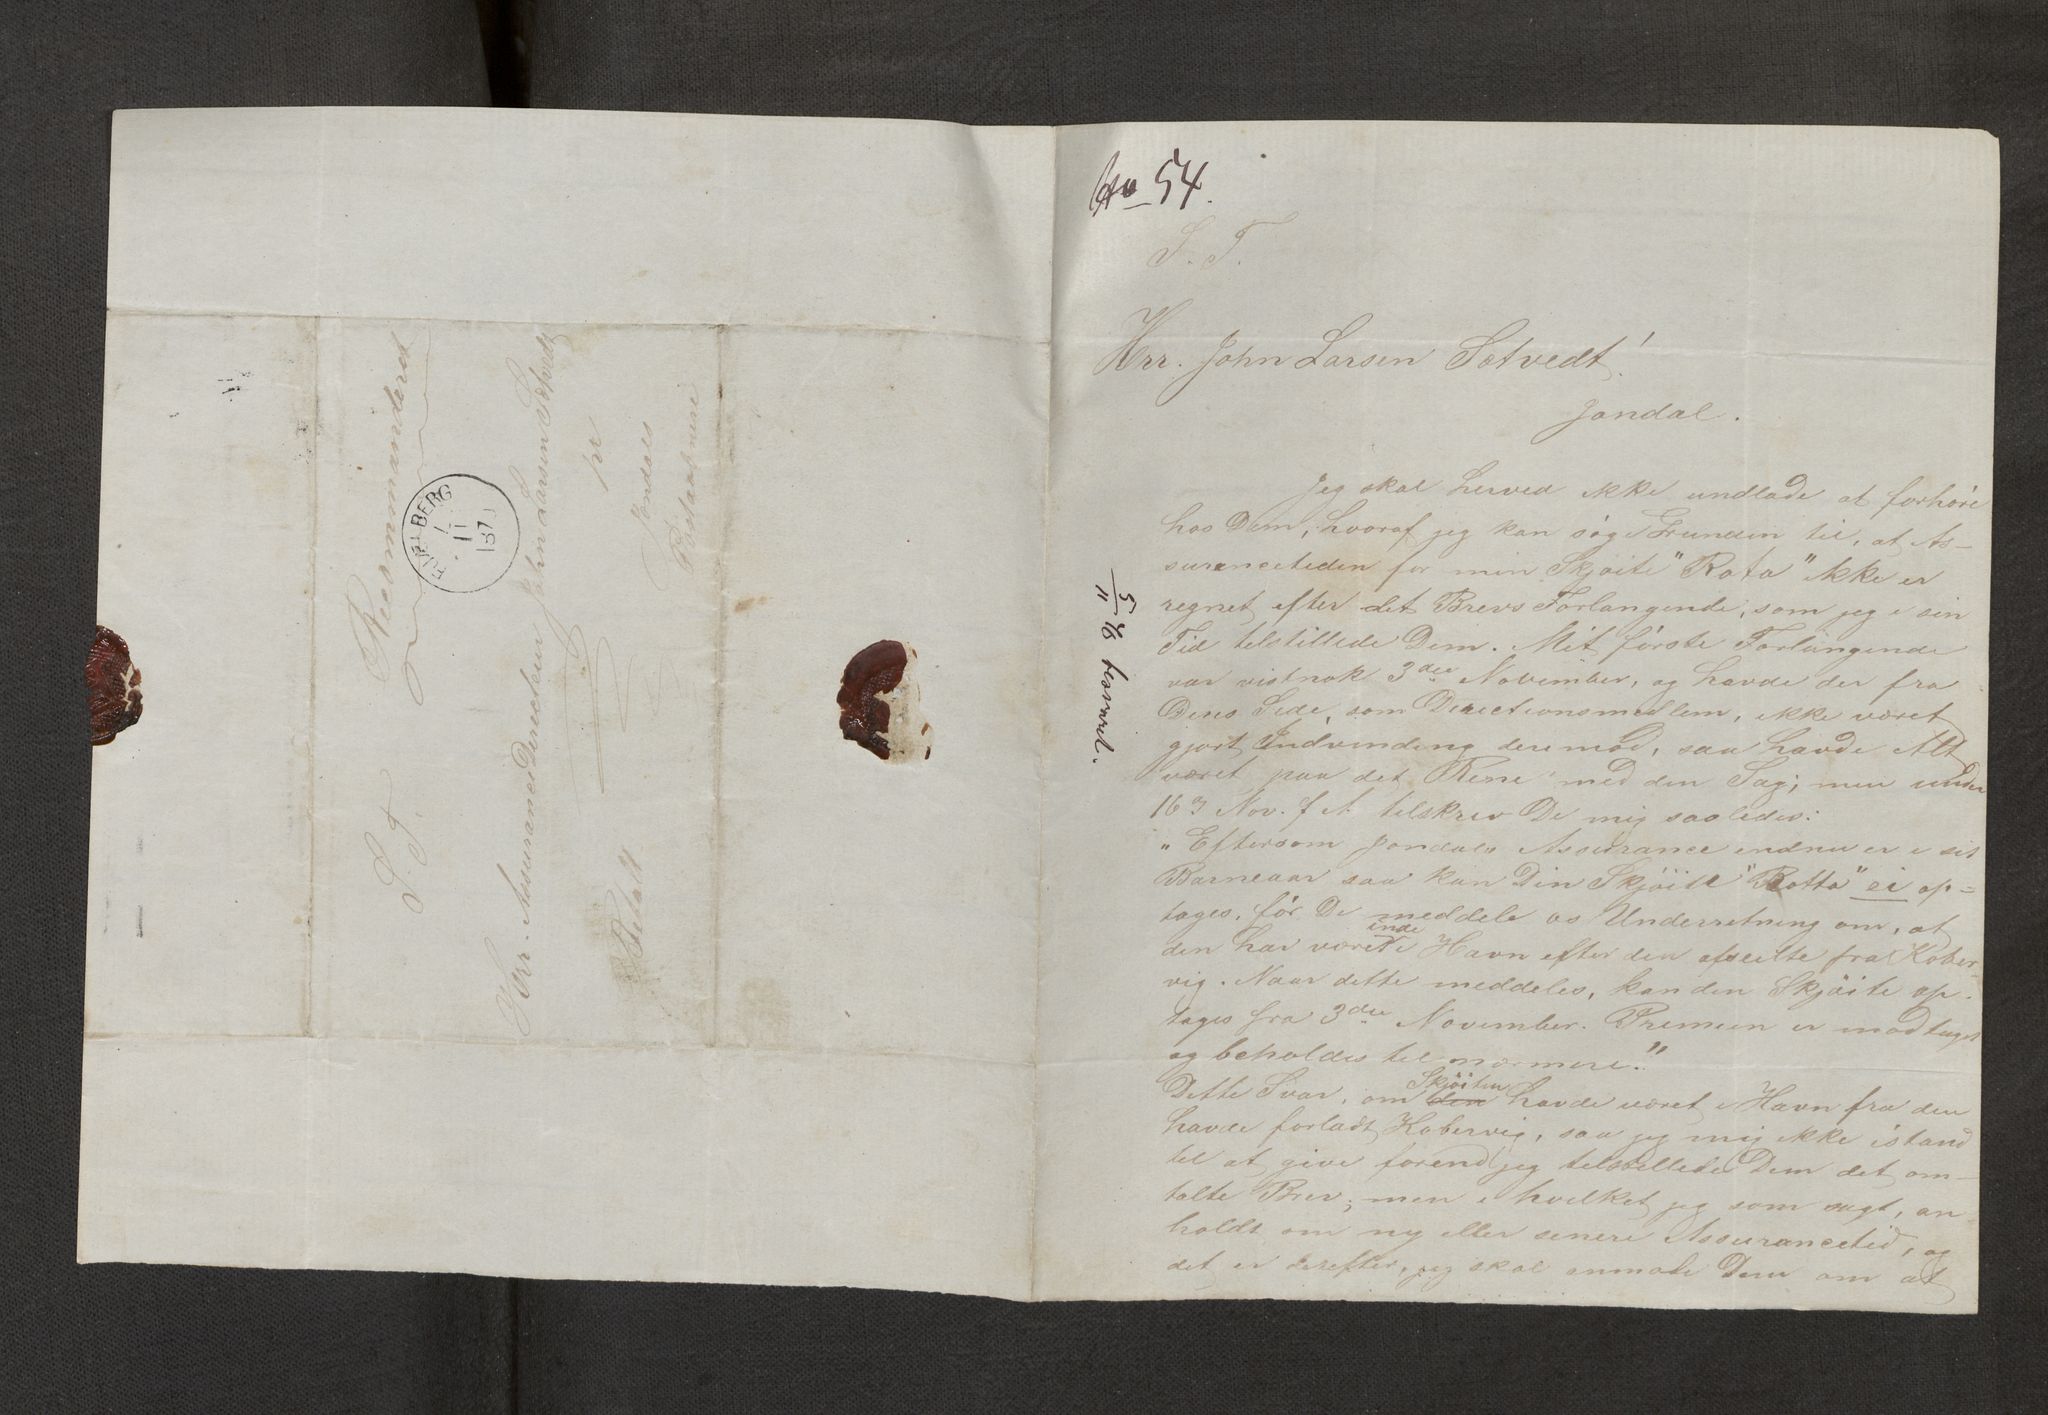 Recommanderet
S. T.
Hrr. Assurance Directeur John Larsen Sætvedt
pr
Jondals
Postaabneri
Betalt
FJELBERG
7
11
187
No 54.
S. T.
Hrr. John Larsen Sotvedt!
Jondal.
Jeg skal herved ikke undlade at forhøre
hos Dem, hvoraf jeg kan søge Grunden til, at As-
surancetiden for min Skjøite "Rota" ikke er
regnet efter det Brevs Forlangende, som jeg i sin
Tid tilstillede Dem. Mit første Forlangende
var vistnok 3die November, og havde der fra
Deres Side, som Directionsmedlem, ikke været
gjort Indvending derimod, saa havde Alt
været paa det Rene med den Sag; men under
163 Nov. f A. tilskrev De mig saaledes:
"Eftersom Jondals Assurance endnu er i sit
Barneaar saa kan Din Skjöite "Rotta" ei op-
tages, før De meddele os Underretning om, at
den har været inde i Havn efter den afseilte fra Kober-
vig. Naar dette meddeles, kan den Skjöite op-
tages fra 3die November. Premien er modtaget
og beholdes til nærmere."
Dette Svar, om den Skjöiten havde været i Havn fra den
havde forladt Kobervig, saa jeg mig ikke istand
til at give førend jeg tilstillede Dem det om-
talte Brev; men i hvilket jeg som sagt, an
holdt om ny eller senere Assurancetid, og
det er derefter, jeg skal anmode Dem om at
5/11 76 besvart.